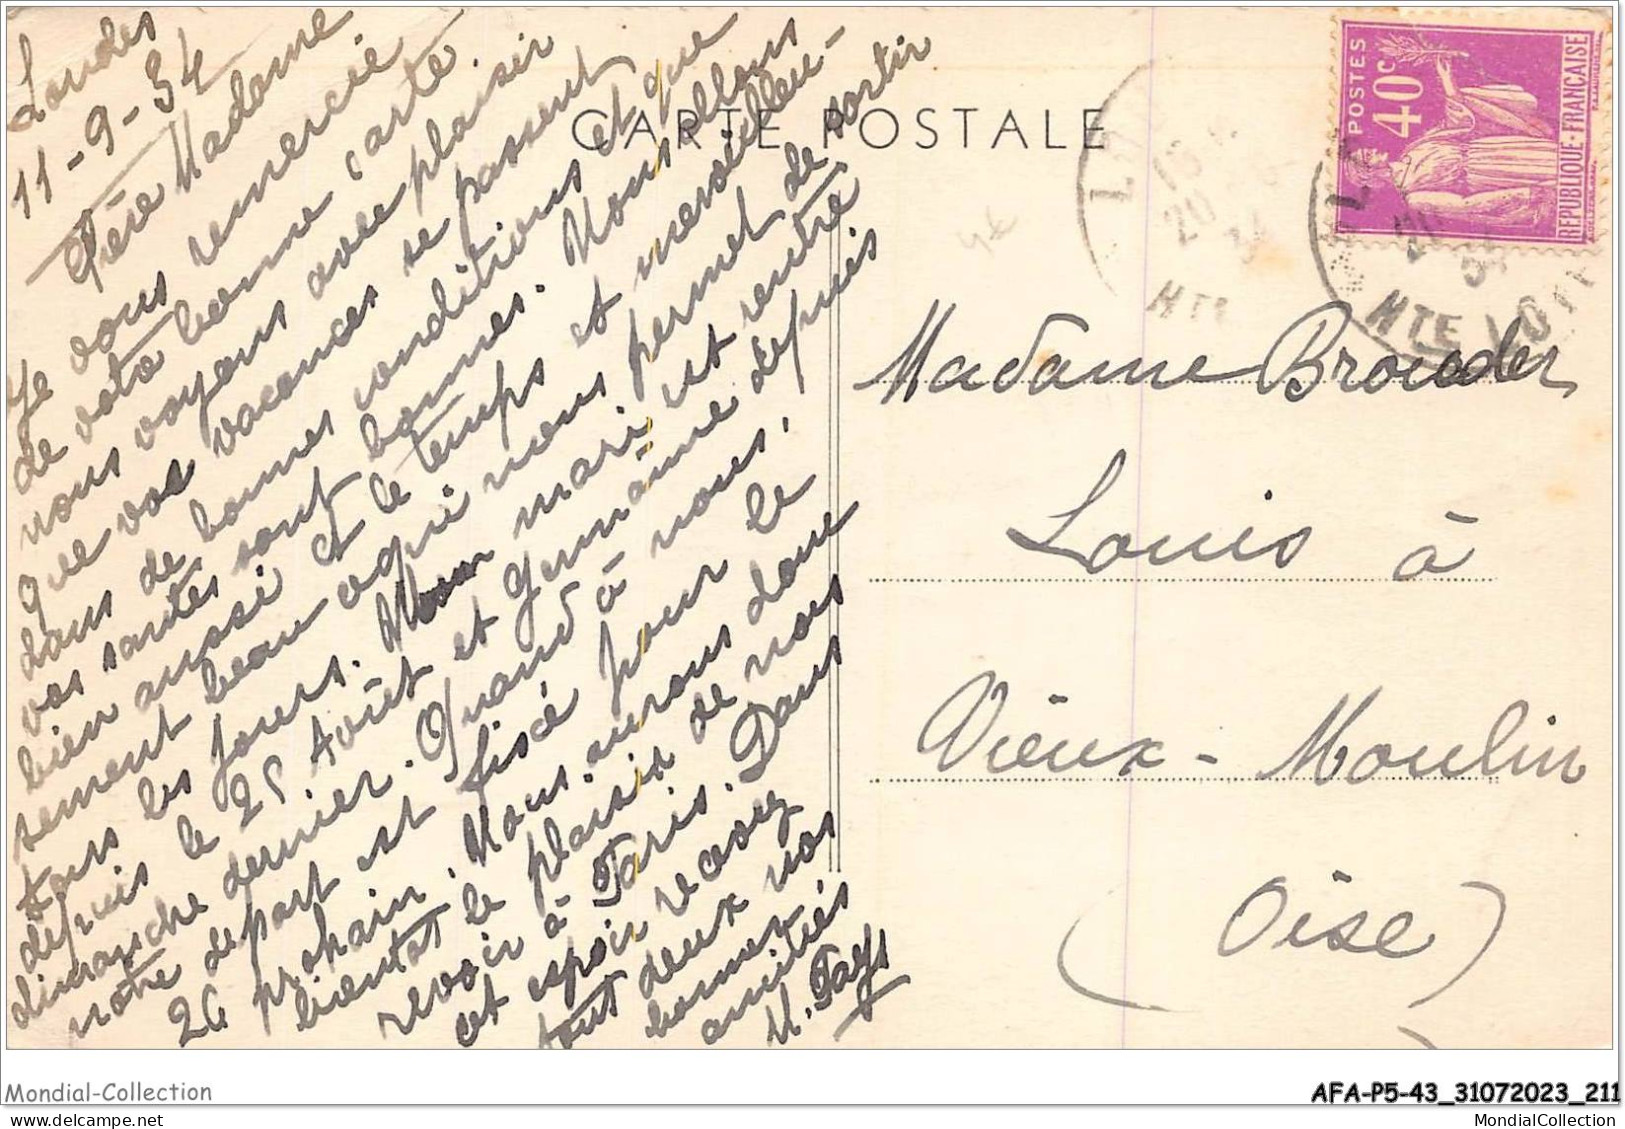 Loudes
11-9-34
Chère Madame
Je vous remercie
de votre bonne carte.
nous voyons avec plaisir
que vos vacances se passent
dans de bonnes conditions et que
vos santés sont bonnes. Nous allons
bien aussi et le temps est merveilleu-
sement beau ce qui nous permet de sortir
tous les jours. Mon mari est rentré
depuis le 25 Août et Germaine depuis
dimanche dernier. Quand à nous,
notre départ est fixé pour le
26 prochain. Nous aurons donc
bientôt le plaisir de vous
revoir à Paris. Dans
cet espoir recevez
tout deux nos
bonnes
amitiés
M. Fays
CARTE POSTALE
POSTES
40c
REPUBLIQUE-FRANÇAISE
20
34
HTE
HTE LOIRE
Madame Brouder
Louis à
Vieux-Moulin
(Oise)
Mondial-Collection
AFA-P5-43_31072023_211
MondialCollection